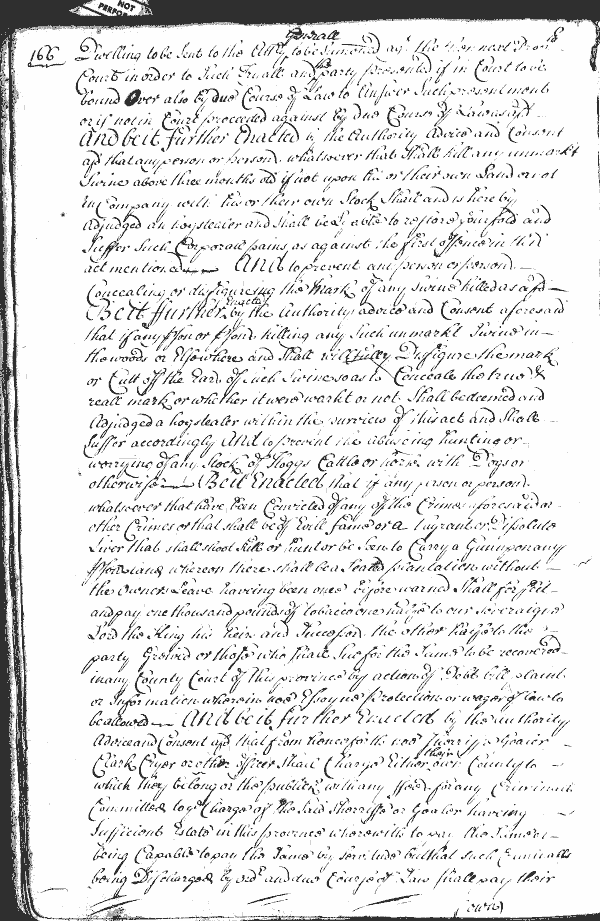 NOT
PERFO
166
Generall
Dwelling to be sent to the Atty to be summoned agt the then next Provll
Court in order to Such Tryall and the party presented if in Court to be
bound Over also by due Course of Law to answer Such presentment
or if not in Court proceeded against by due Course of Law as afd
And be it further Enacted by the Authority advice and Consent
afd that any person or persons whatsoever that Shall kill any unmarkt
Swine above three months old if not upon his or their own Land or not
in Company with his or their own Stock Shall and is hereby
Adjudged an hogstealer and Shall be lyable to restore fourfold and
Suffer Such Corporall pains as against the first offence in this
act mentioned And to prevent any person or persons
Concealing or disfigureing the Mark of any swine killed as afd
Be it further Enacted by the Authority advice and Consent aforesaid
that if any pson or psons killing any Such unmarkt Swine in
the woods or Elsewhere and Shall willfully Disfigure the mark
or Cutt off the Ears of Such Swine so as to Conceale the true &
reall mark or whether it were markt or not Shall be deemed and
Adjudged a hogstealer within the purview of this act and Shall
Suffer accordingly And to prevent the abuseing hunting or
worrying of any Stock of Hoggs Cattle or horse with Dogs or
otherwise Be it Enacted that if any person or persons
whatsoever that have been Convicted of any of the Crimes aforesaid or
other Crimes or that shall be of Evill fame or a Vagrant or Dissolute
Liver that shall shoot kill or hunt or be Seen to Carry a Gunn upon any
psons land whereon there shall be a Seated plantation without
the Owners Leave haveing been once before warned Shall forfeit
and pay one thousand pounds of tobacco one halfe to our Soveraigne
Lord the King his heirs and Successors the other halfe to the
party Greived or those who shall Sue for the Same to be recovered
in any County Court of this province by action of Debt bill plaint
or Information wherein noe Essoyne protection or wager of law to
be allowed And be it further Enacted by the authority
Advice and Consent afd that from henceforth noe Sherriffe Goaler
Clark Cryer or other officer Shall Charge Either their own County to
which they belong or the publick with any ffees for any Criminall
Committed to ye Charge of the Said Sherriffe or Goaler haveing
Sufficient Estate in this province wherewith to pay the Same or
being Capable to pay the Same by servitude but that such Criminalls
being Discharged by ordr and due Course of Law shall pay their
own